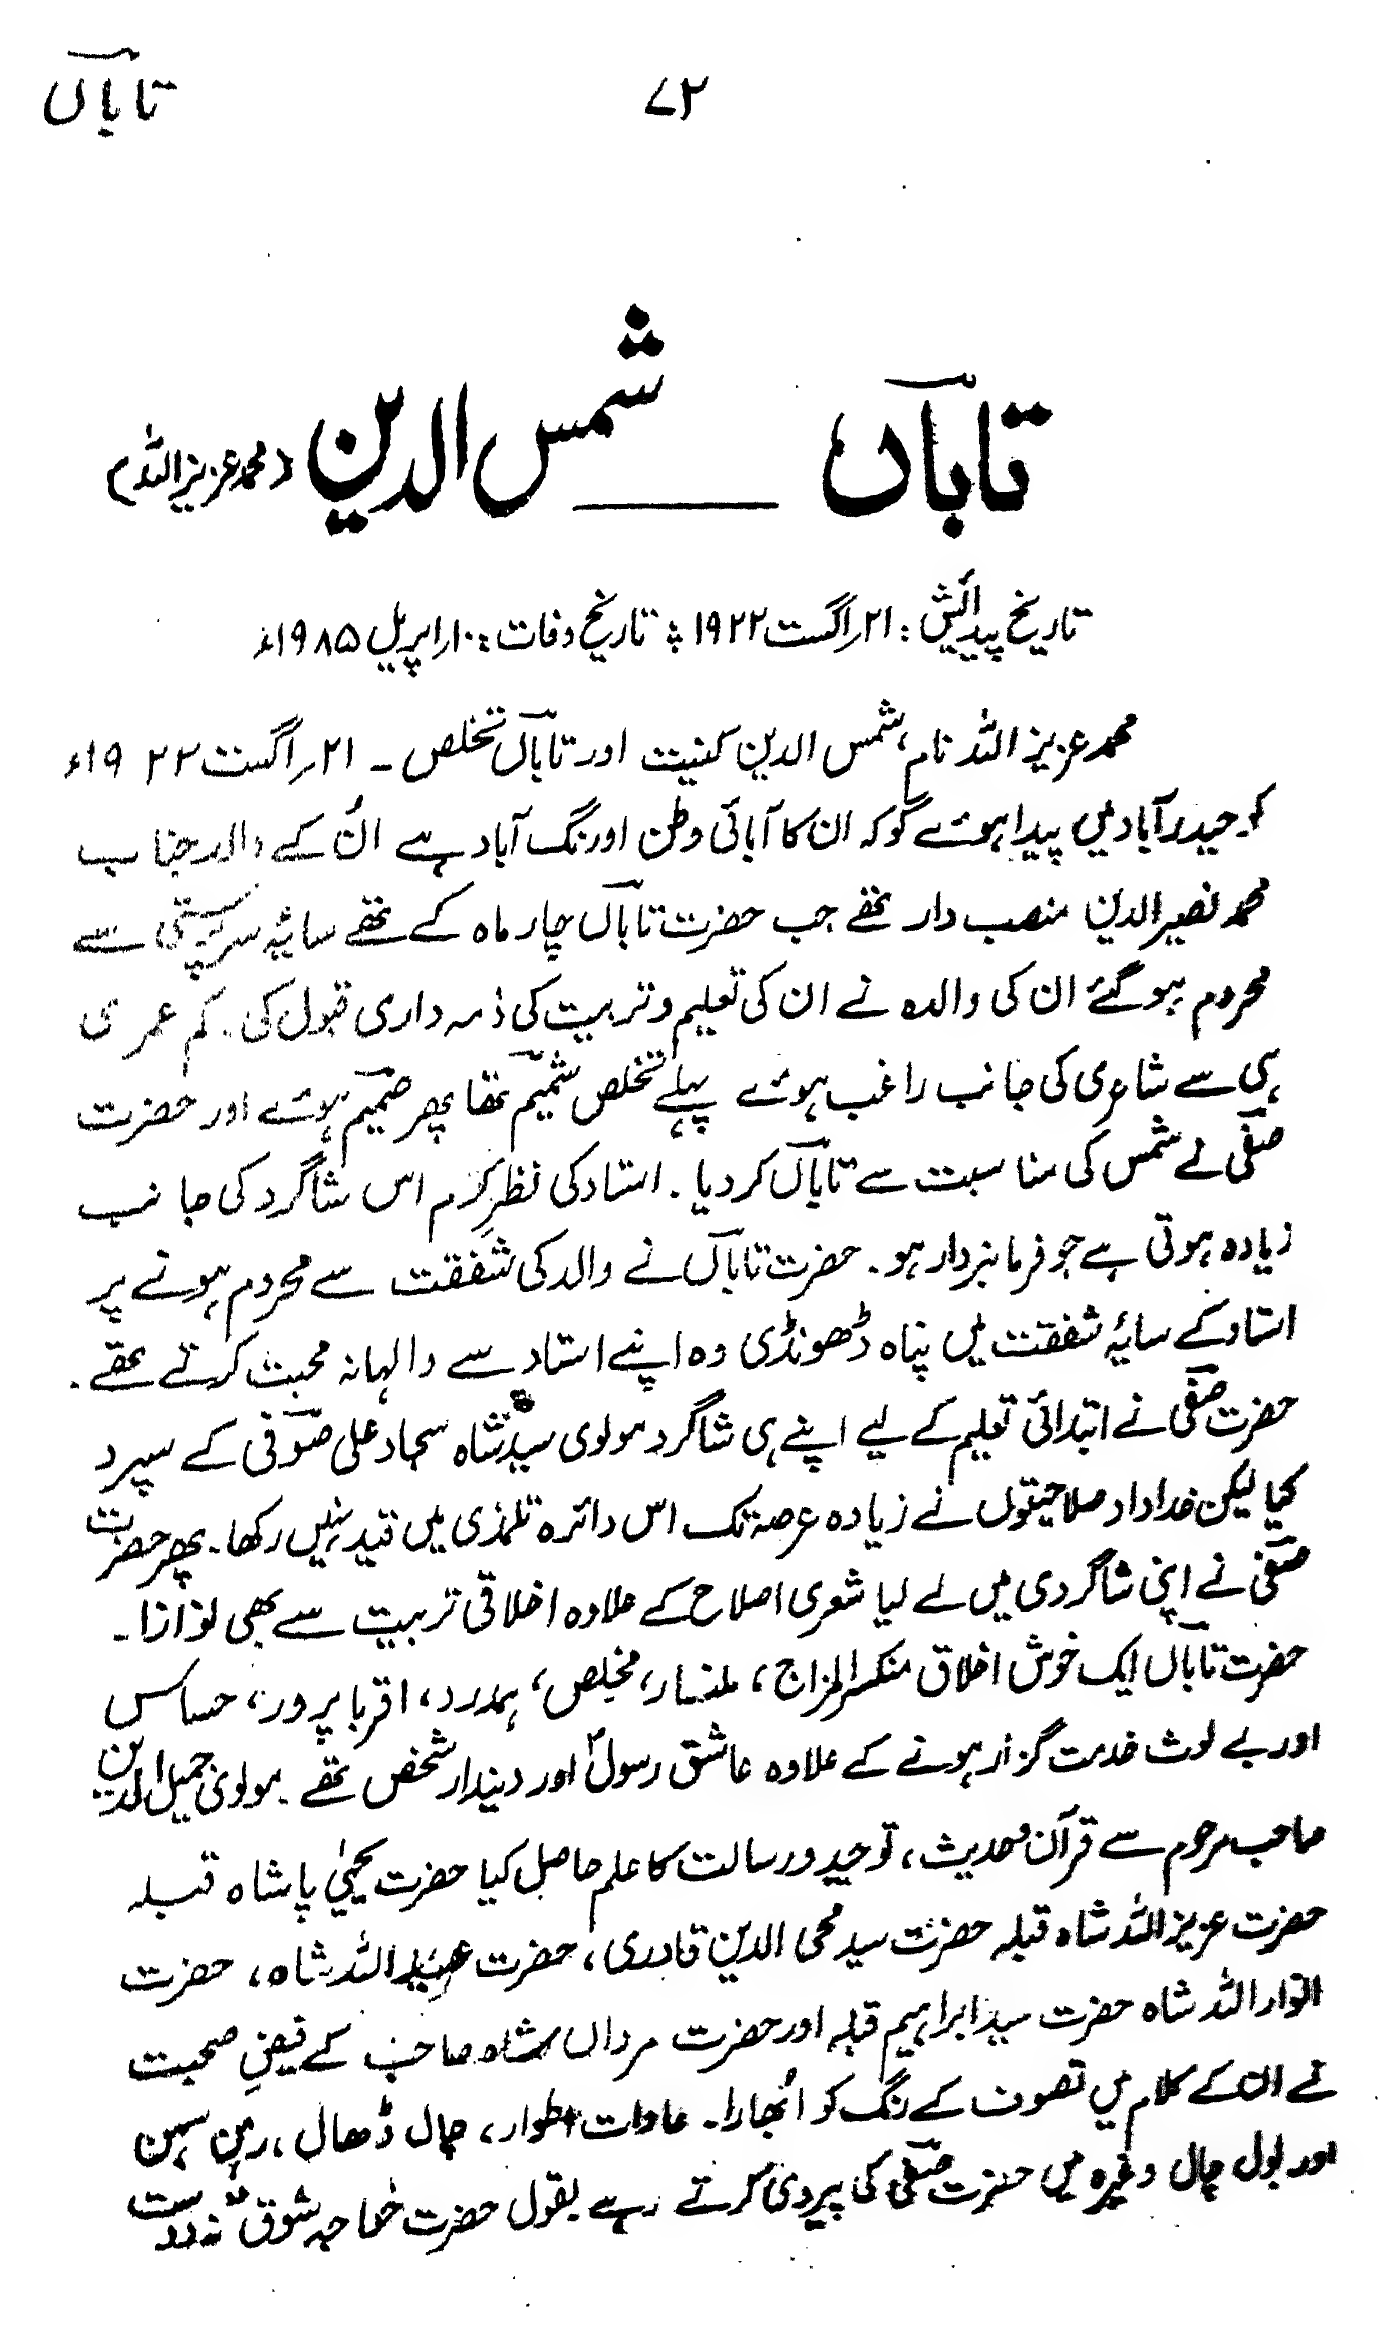 تاباں
۷۲
تاباں ــــــ شمس الدین (محمد عزیز اللہ)
تاریخ پیدائش: ۲۱ر اگست ۱۹۲۲ تاریخ وفات: ۱۰ر اپریل ۱۹۸۵ء
محمد عزیز اللہ نام، شمس الدین کنیت اور تاباں تخلص ۔ ۲۱ر اگست ۱۹۲۲ء
کو حیدرآباد میں پیدا ہوئے گوکہ ان کا آبائی وطن اورنگ آباد ہے اُن کے والد جناب
محمد نصیر الدین منصب دار تھے جب حضرت تاباں چار ماہ کے تھے سایۂ سرپرستی سے
محروم ہوگئے ان کی والدہ نے ان کی تعلیم و تربیت کی ذمہ داری قبول کی۔ کم عمری
ہی سے شاعری کی جانب راغب ہوئے پہلے تخلص شمیم تھا پھر ضمیم ہوئے اور حضرت
صفی نے شمس کی مناسبت سے تاباں کردیا۔ استاد کی نظرِ کرم اس شاگرد کی جانب
زیادہ ہوتی ہے جو فرمانبردار ہو۔ حضرت تاباں نے والد کی شفقت سے محروم ہونے پر
استاد کے سایۂ شفقت میں پناہ ڈھونڈی وہ اپنے استاد سے والہانہ محبت کرتے تھے۔
حضرت صفی نے ابتدائی تعلیم کے لیے اپنے ہی شاگرد مولوی سید شاہ سجاد علی صوفی کے سپرد
کیا لیکن خداداد صلاحیتوں نے زیادہ عرصہ تک اس دائرہ تلمذی میں قید نہیں رکھا۔ پھر حضرت
صفی نے اپنی شاگردی میں لے لیا شعری اصلاح کے علاوہ اخلاقی تربیت سے بھی نوازا۔
حضرت تاباں ایک خوش اخلاق منکسرالمزاج، ملنسار، مخلص، ہمدرد، اقربا پرور، حساس
اور بے لوث خدمت گزار ہونے کے علاوہ عاشق رسولؐ اور دیندار شخص تھے۔ مولوی جمیل الدین
صاحب مرحوم سے قرآن و حدیث، توحید و رسالت کا علم حاصل کیا حضرت یحییٰ پاشاہ قبلہ
حضرت عزیز اللہ شاہ قبلہ حضرت سید محی الدین قادری، حضرت عبید اللہ شاہ، حضرت
انوار اللہ شاہ حضرت سید ابراہیم قبلہ اور حضرت مرداں شاہ صاحب کے فیضِ صحبت
نے ان کے کلام میں تصوف کے رنگ کو اُبھارا۔ عادات اطوار، چال ڈھال، رہن سہن
اور بول چال وغیرہ میں حضرت صفی کی پیروی کرتے رہے بقول حضرت خواجہ شوق